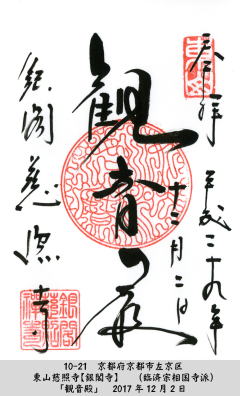 奉拝
平成二十九年
十二月二日
観音殿
銀閣慈照寺
10-21 京都府京都市左京区
東山慈照寺【銀閣寺】 (臨済宗相国寺派)
「観音殿」 2017年12月2日